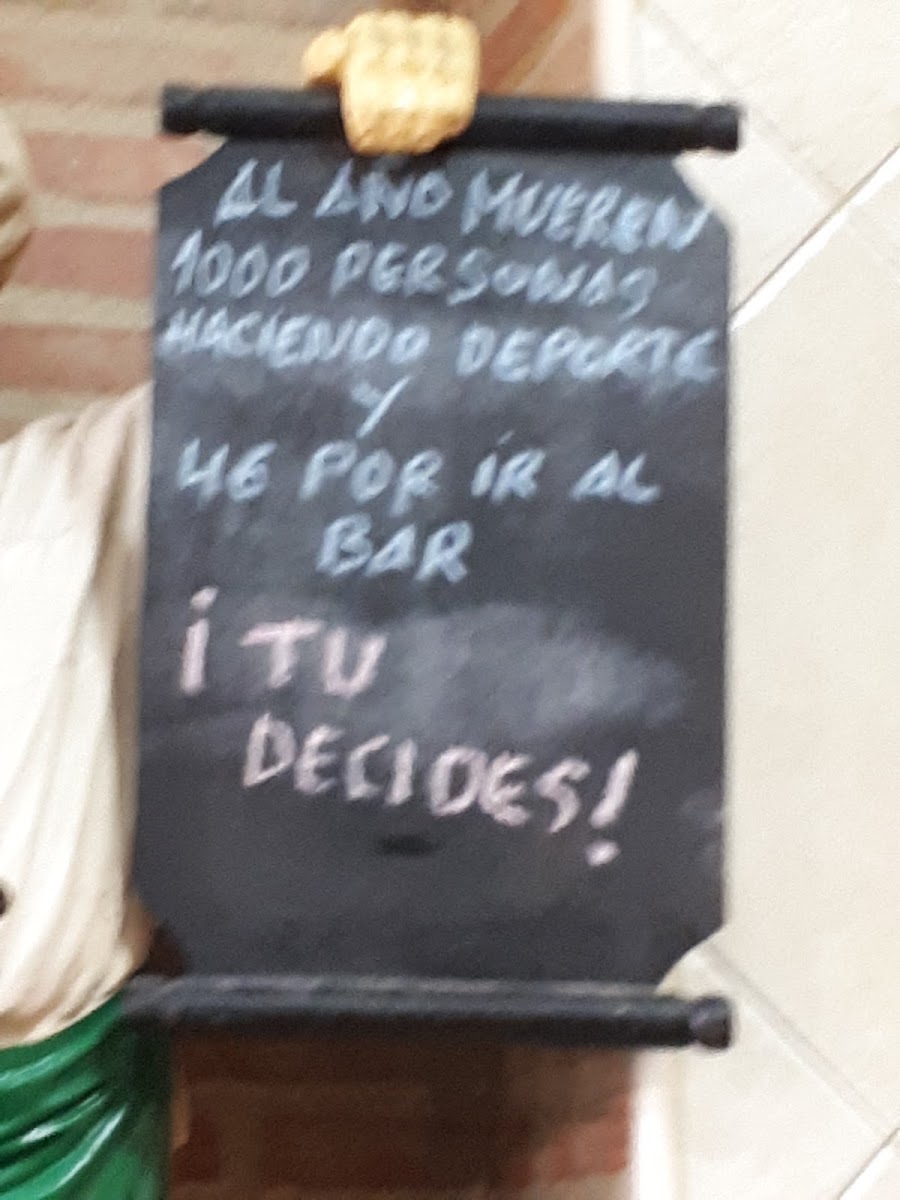 AL AÑO MUEREN
1000 PERSONAS
HACIENDO DEPORTE
Y
46 POR IR AL
BAR
¡TU
DECIDES!